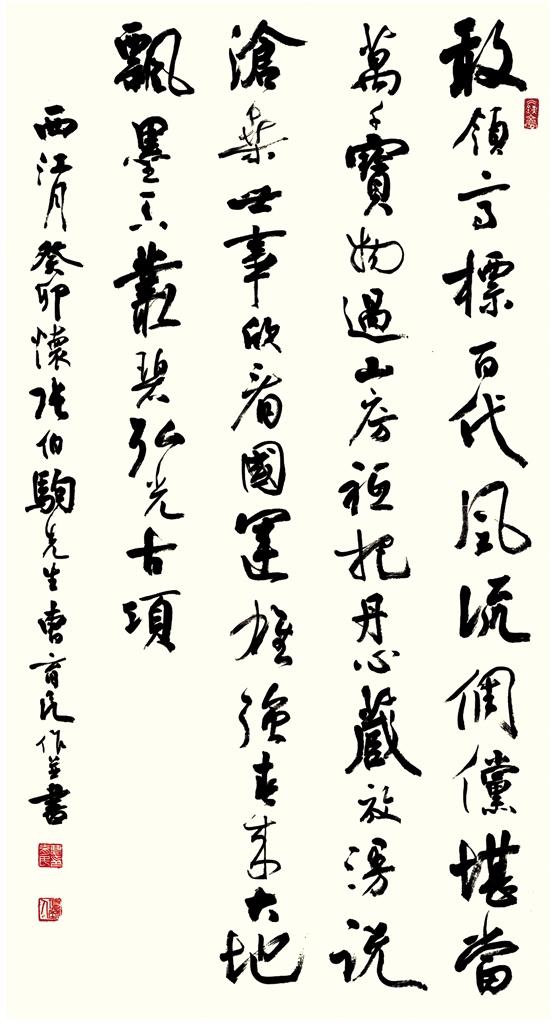 敢領高標百代風流倜儻堪當
萬千寶物過山房祗把丹心藏放漫説
滄桑世事欣看國運雄強春來大地
飄墨香叢碧弘光古項
西江月癸卯懷張伯駒先生曹育民作並書